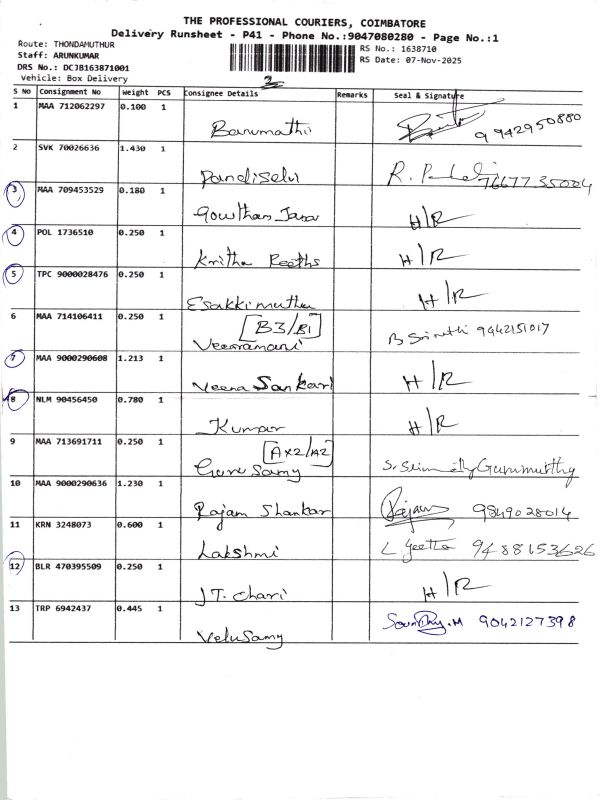 THE PROFESSIONAL COURIERS, COIMBATORE
Delivery Runsheet - P41 - Phone No.:9047080280 - Page No.:1
Route: THONDAMUTHUR
Staff: ARUNKUMAR
DRS No.: DCJB163871001
Vehicle: Box Delivery
RS No.: 1638710
RS Date: 07-Nov-2025
S NO Consignment No Weight PCS Consignee Details Remarks Seal & Signature
1 MAA 712062297 0.100 1
Banumathi 9942950880
2 SVK 70026636 1.430 1
Pandiselvi R. 7667735004
3 MAA 709453529 0.180 1
Gowtham H/R
4 POL 1736510 0.250 1
Kritha H/R
5 TPC 9000028476 0.250 1
Esakkimuthu H/R
6 MAA 714106411 0.250 1
[B3/B1]
Veeramani 9442151017
7 MAA 9000290608 1.213 1
Veena Sankari H/R
8 NLM 90456450 0.780 1
Kumar H/R
9 MAA 713691711 0.250 1
[Ax2/A2]
Guru Samy S. Gurumurthy
10 MAA 9000290636 1.230 1
Rajam Shankar Rajam 9849028014
11 KRN 3248073 0.600 1
Lakshmi L Geetha 9488153626
12 BLR 470395509 0.250 1
JT. chari H/R
13 TRP 6942437 0.445 1
Velusamy 9042127398